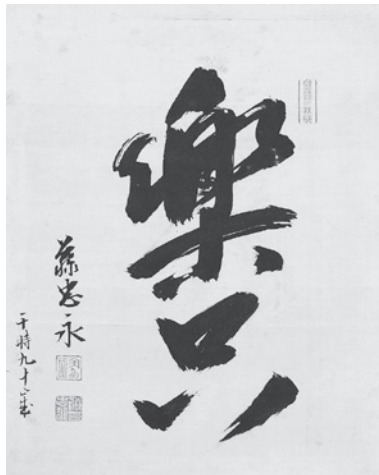 樂只
藤忠永
于時九十二歳